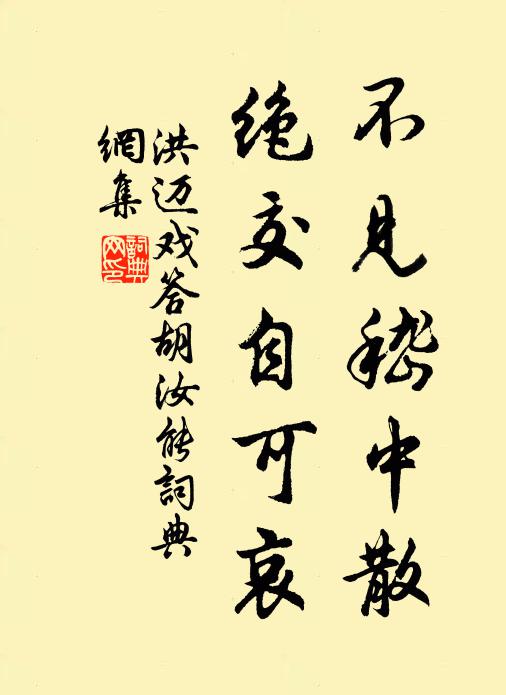 不见嵇中散
绝交自可哀
洪迈戏答胡汝能詞典
網集
詞典
网印